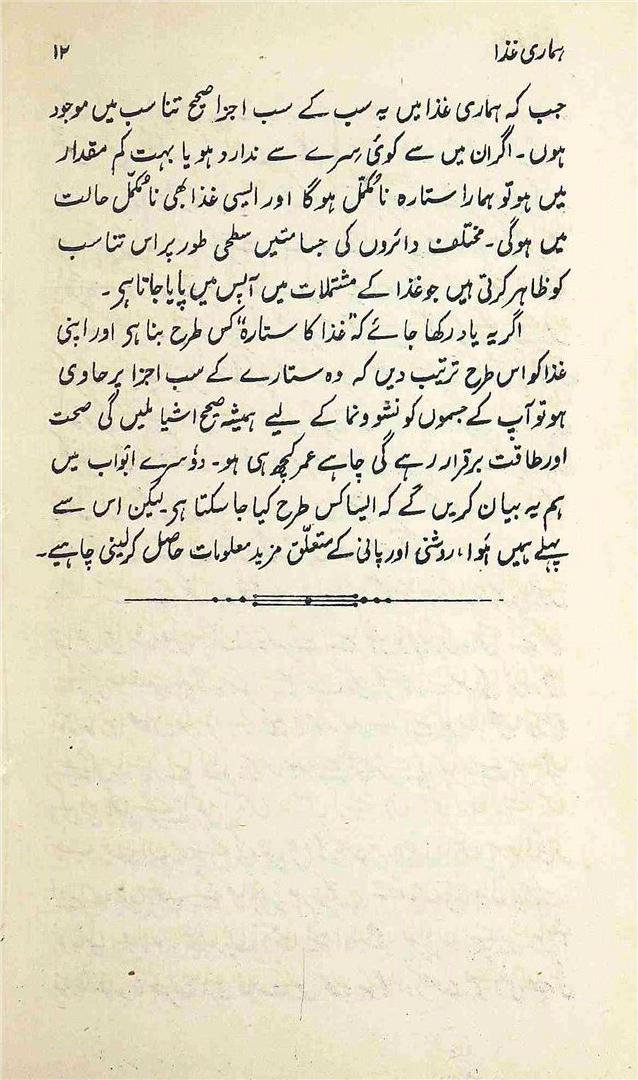 ہماری غذا ۱۲
جب کہ ہماری غذا میں یہ سب کے سب اجزا صحیح تناسب میں موجود
ہوں۔ اگر ان میں سے کوئی سِرے سے ندارد ہو یا بہت کم مقدار
میں ہو تو ہمارا ستارہ نامکمّل ہوگا اور ایسی غذا بھی نامکمّل حالت
میں ہوگی۔ مختلف دائروں کی جسامتیں سطحی طور پر اس تناسب
کو ظاہر کرتی ہیں جو غذا کے مشتملات میں آپس میں پایا جاتا ہی۔
اگر یہ یاد رکھا جائے کہ ”غذا کا ستارہ“ کس طرح بنا ہی اور اپنی
غذا کو اس طرح ترتیب دیں کہ وہ ستارے کے سب اجزا پر حاوی
ہو تو آپ کے جسموں کو نشو و نما کے لیے ہمیشہ صحیح اشیا ملیں گی صحت
اور طاقت برقرار رہے گی چاہے عمر کچھ ہی ہو۔ دوٗسرے ابواب میں
ہم یہ بیان کریں گے کہ ایسا کس طرح کیا جا سکتا ہی لیکن اس سے
پہلے ہمیں ہَوا، روشنی اور پانی کے متعلّق مزید معلومات حاصل کرلینی چاہیے۔